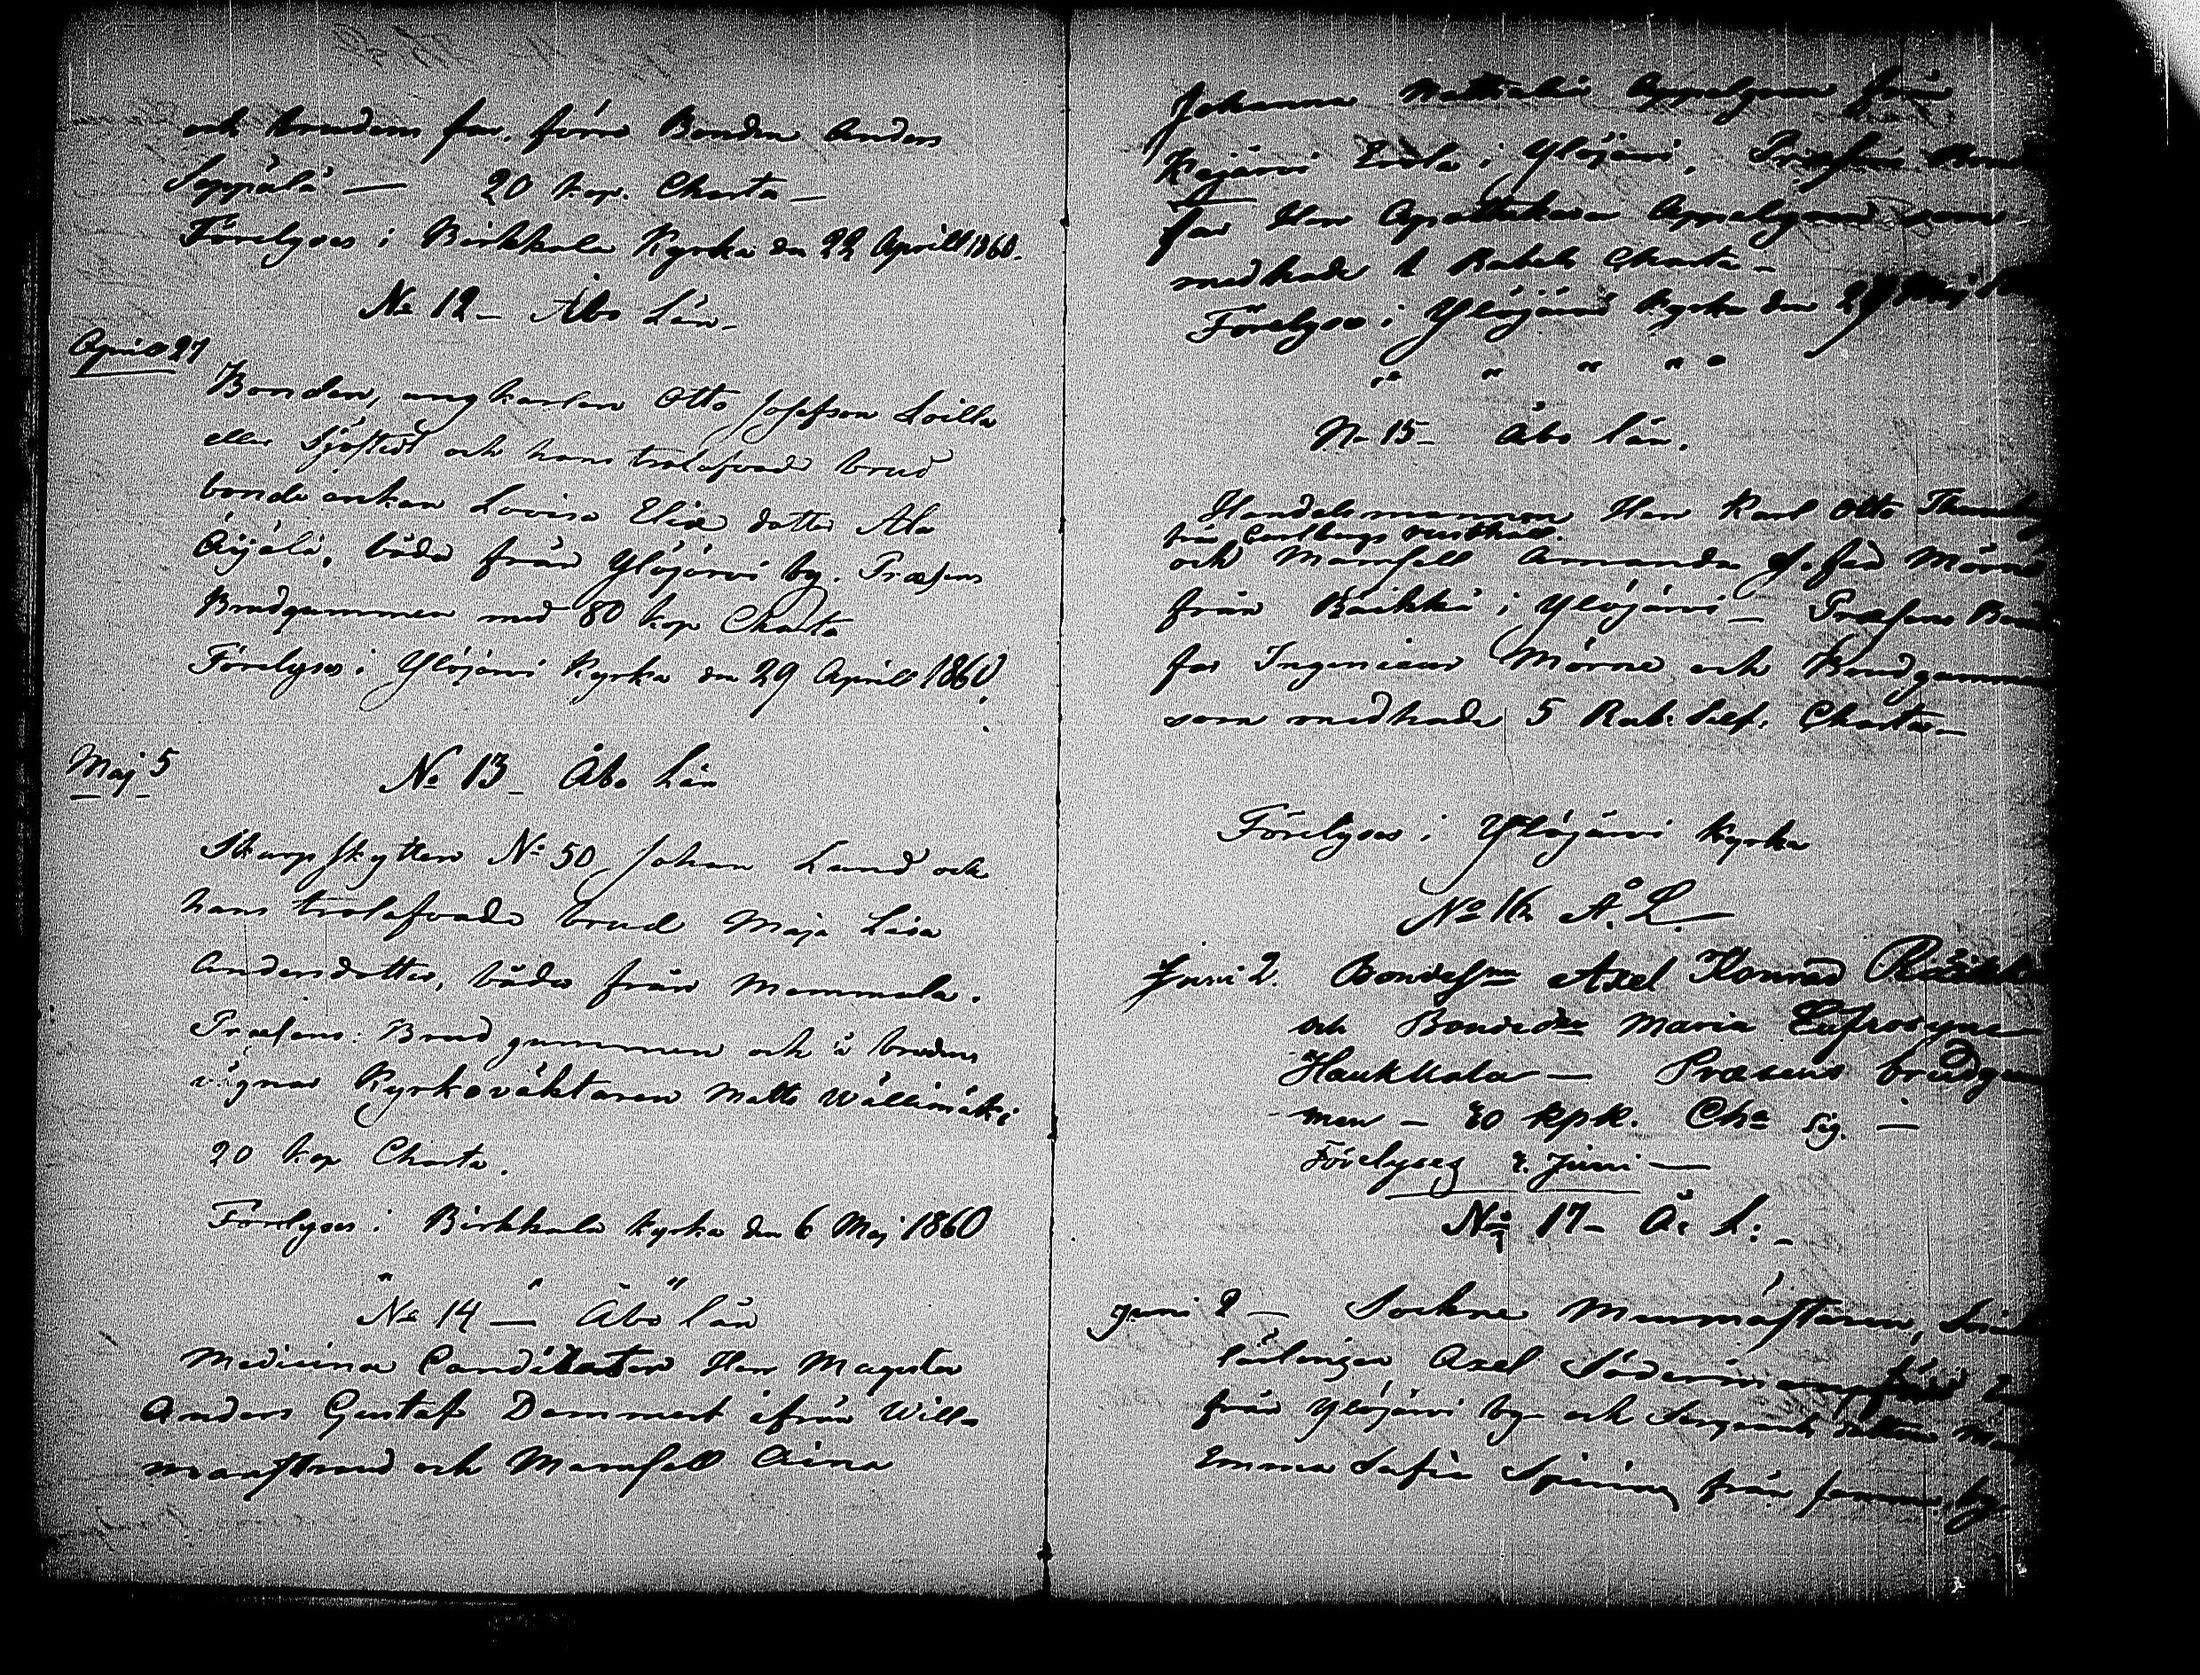 och brudens far, förre Bonden Anders
Seppälä — 20 kop. Charta —
Förelyses i Birkkala Kyrka den 22 Aprill 1860.
No 12 — Åbo Län —
April 27
Bonden, ungkarlen Otto Josefson Soilla
eller Sjöstedt och hans trolofvade brud
bonde enkan Lovisa Elia dotter Ala
Äijälä, båda från Ylöjärvi by. Præsens
Brudgummen med 80 kop Charta
Förelyses i Ylöjärvi Kyrka den 29 Aprill 1860.
Maj 5
No 13 — Åbo Län
Skarpskytten No 50 Johan Lund och
hans trolofvade brud Maja Lisa
Andersdotter, båda från Memmala.
Præsens: Brudgummen och å brudens
vägnar Kyrkoväktaren Matts Wällimäki
20 kop Charta.
Förelyses i Birkkala kyrka den 6 Maj 1860
No 14 — Åbo län
Medicine Candidaten Herr Magister
Anders Gustaf Dammert ifrån Willa
manstrand och Mamsell Aina
Johanna Appelgren från
Keijärvi i Ylöjärvi, Præsens
far Herr Apothekaren Appelgren som
medhade 1 Rubels Charta —
Förelyses i Ylöjärvi Kyrka den 27 Maj
" " " " "
N— 15 — Åbo län.
Handelsmannen Herr Karl Otto
från Carlbergs
och Mamsell Amanda född Mörne
från Räikkä i Ylöjärvi — Præsens
far Ingenieur Mörne och Brudgumm
som medhade 5 Rub. Silf. Charta —
Förelyses i Ylöjärvi Kyrka
No 16 Å. L.
Juni 2. Bondes:n Axel Konrad
och Bonded:r Maria Eufrosyne
Haukkala — Præsens brudgum
men — 20 kpk. Cha Sig. —
Förelyses 3. Juni —
No 17 — Å: L: —
Juni 2 — Sockne Murmästaren,
lärlingen Axel Söderström
från Ylöjärvi by och Sergeants dottern
Emma Sofia från samma by